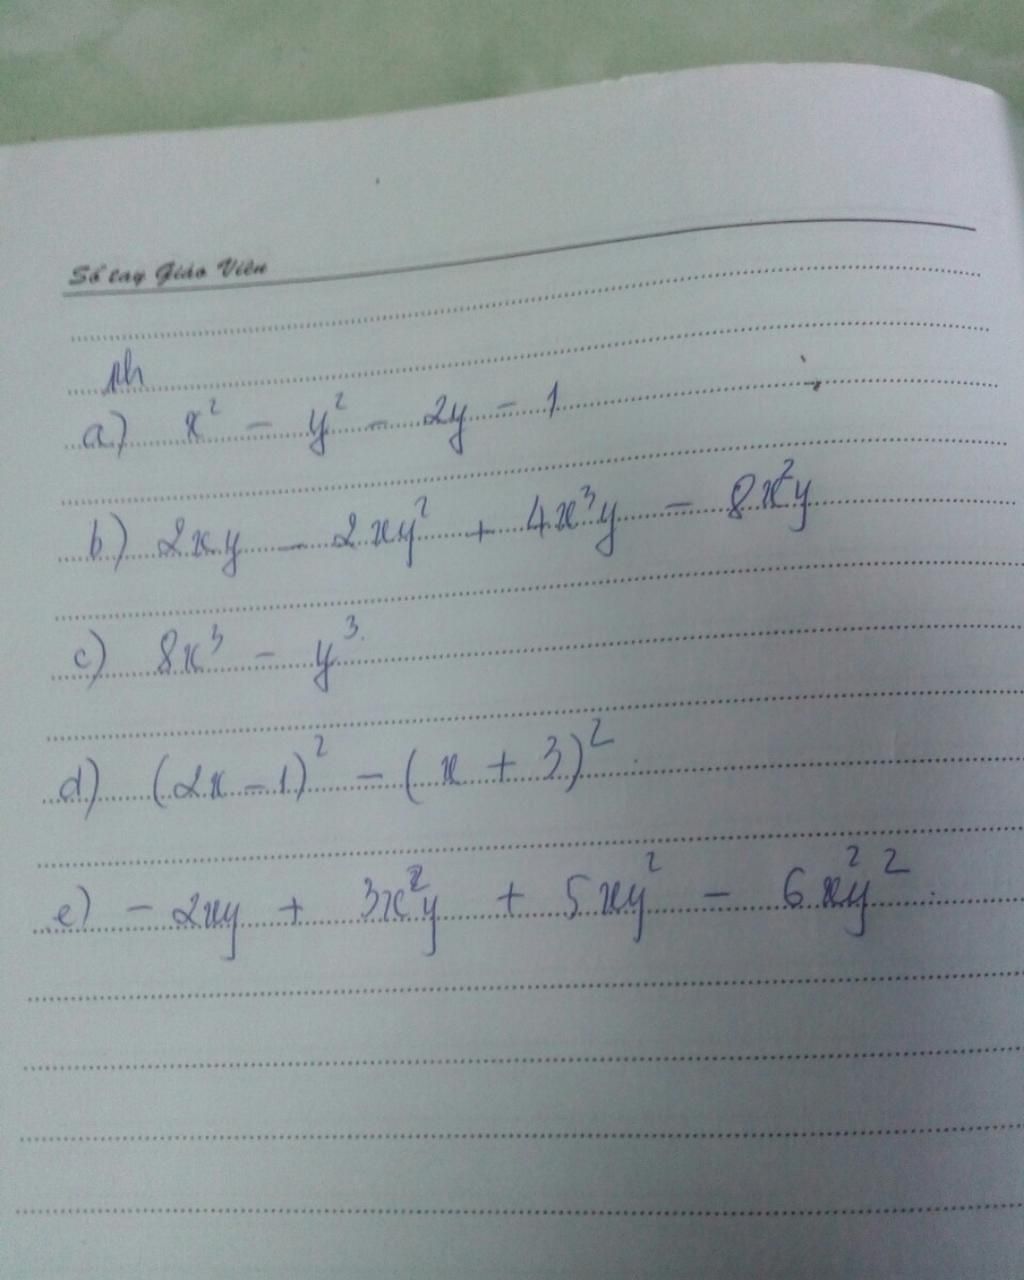 Sổ tay Giáo Viên
a) x² - y² - 2y - 1
b) 2xy - 2xy² + 4x³y - 8x²y
c) 8x³ - y³.
d) (2x - 1)² - (x + 3)².
e) - 2xy + 3x²y + 5xy² - 6x²y².